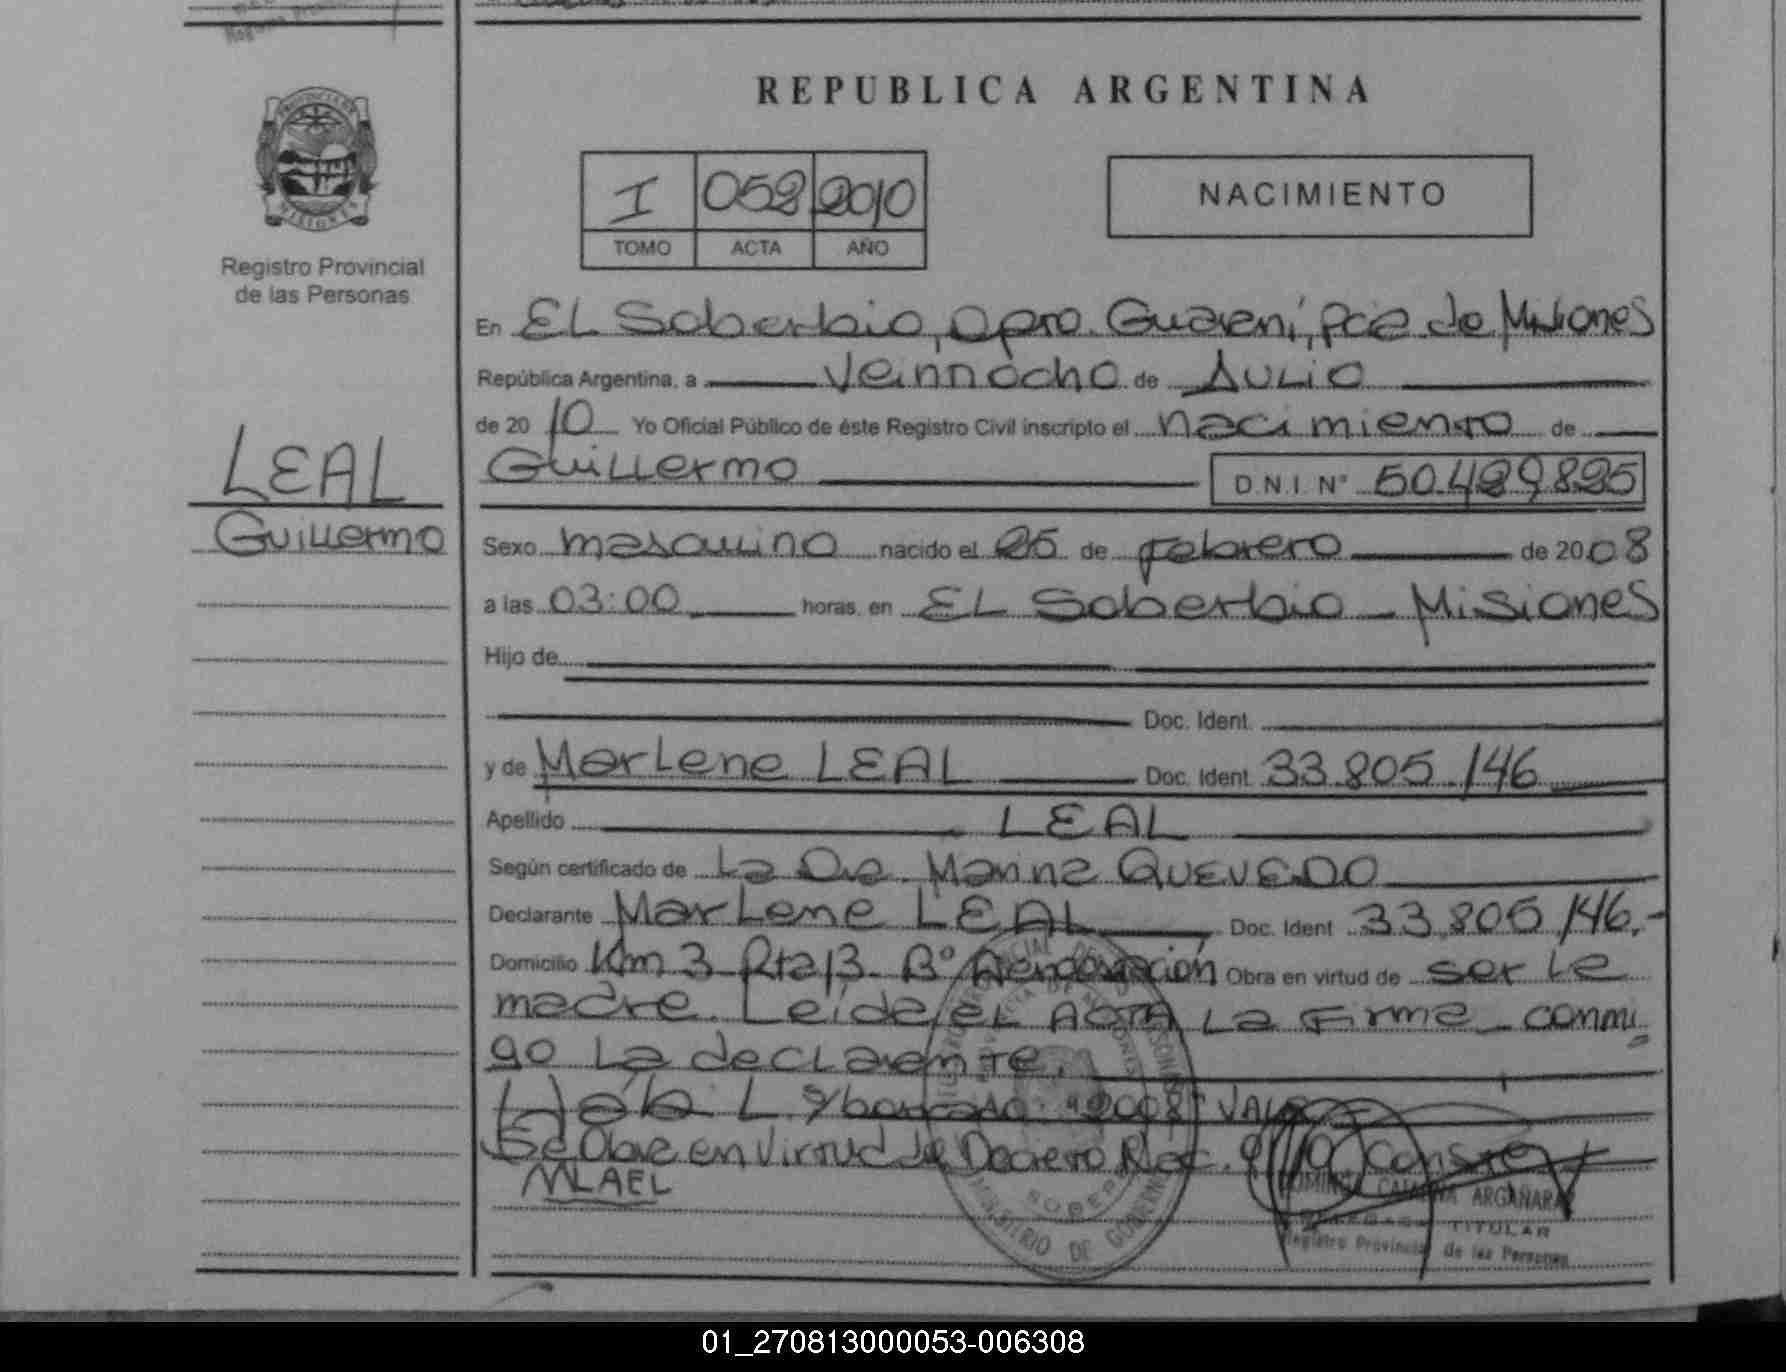 REPUBLICA ARGENTINA
PROVINCIA DE
MISIONES
I 052 2010
TOMO ACTA AÑO
NACIMIENTO
Registro Provincial
de las Personas
En EL Soberbio, Dpto. Guaraní, Pcia de Misiones
República Argentina, a Veintiocho de JULIO
de 2010 Yo Oficial Público de éste Registro Civil inscripto el nacimiento de
LEAL
Guillermo
Guillermo D.N.I. Nº 50.429.825
Sexo masculino nacido el 25 de Febrero de 2008
a las 03:00 horas, en EL Soberbio - Misiones
Hijo de
Doc. Ident.
y de Marlene LEAL Doc. Ident. 33.805.146
Apellido LEAL
Según certificado de La Dra. Marina QUEVEDO
Declarante Marlene LEAL Doc. Ident 33.805.146.-
Domicilio Km 3 Rta 13 - Bº Obra en virtud de ser la
madre. Leída EL ACTA La Firma conmi
go La declarante.
"2008" VALE
Se Obra en Virtud de Decreto Conste
MLAEL
MINISTERIO DE GOBIERNO
CATALINA ARGAÑARAZ
DELEGADA TITULAR
Registro Provincial de las Personas
01_270813000053-006308